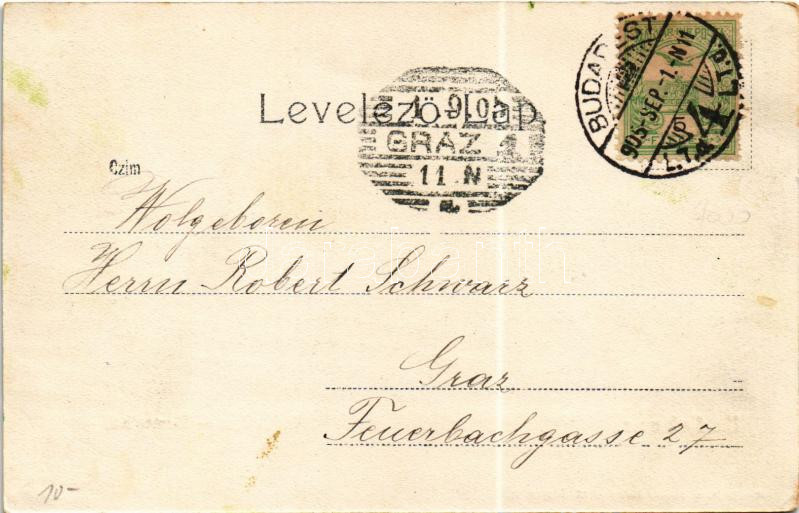 Levelező-Lap
BUDAPEST
905 SEP. 1. N11
4
GRAZ 1
11 N
Czim
Wolgeboren
Herrn Robert Schwarz
Graz
Feuerbachgasse 27
10-